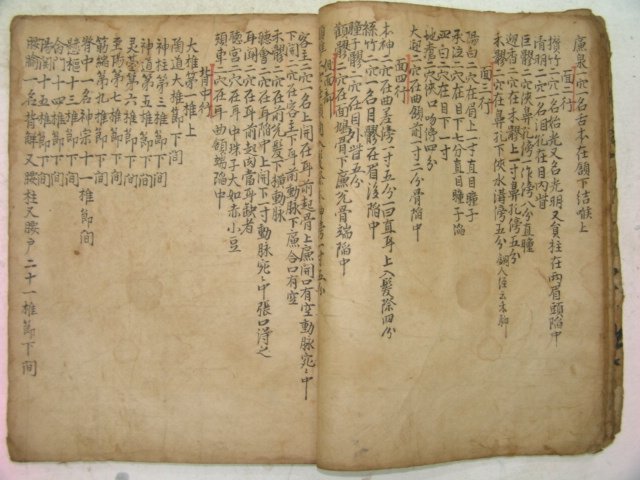 廉泉一穴一名舌本在頷下結喉上
面二行
攅竹二穴一名始光又名光明又員柱在兩眉頭陷中
睛明二穴一名泪孔在目內眥
巨髎二穴俠鼻孔傍八分直瞳
迎香二穴在禾髎上一寸鼻孔傍五分
禾髎二穴在鼻孔下俠水溝傍五分
面三行
陽白二穴在眉上一寸直目瞳子
承泣二穴在目下七分直目瞳子陷
四白二穴在目下一寸
地倉二穴俠口吻傍四分
大迎二穴在曲頷前一寸二分骨陷中
面四行
本神二穴在曲差傍一寸五分一曰直耳上入髮際四分
絲竹二穴一名目髎在眉後陷中
瞳子髎二穴在目外眥五分
顴髎二穴在面頄骨下廉兌骨端陷中
客主人二穴一名上關在耳前起骨上廉開口有空動脉宛宛中
下關二穴在客主人下耳前動脉下廉合口有空
禾髎二穴在耳前兌髮下橫動脉
聽會二穴在耳陷中上關下一寸動脉宛宛中張口得之
耳門二穴在耳前起肉當耳缺者
聽宮二穴在耳中珠子大如赤小豆
頰車二穴在耳曲頰端陷中
背中行
大椎第一椎上
陶道大椎節下間
神柱第三椎節下間
神道第五椎節下間
灵臺第六椎節下間
至陽第七椎節下間
筋縮第九椎節下間
脊中一名神宗十一椎節間
懸樞十三椎節下間
命門十四椎節下間
陽關十六椎節下間
腰腧一名背鮮又腰柱又腰戶二十一椎節下間